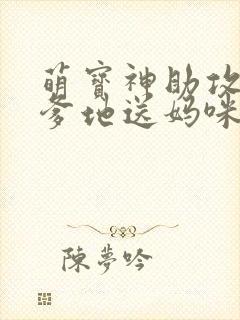 萌寶神助攻
爹地送媽咪
陳夢吟